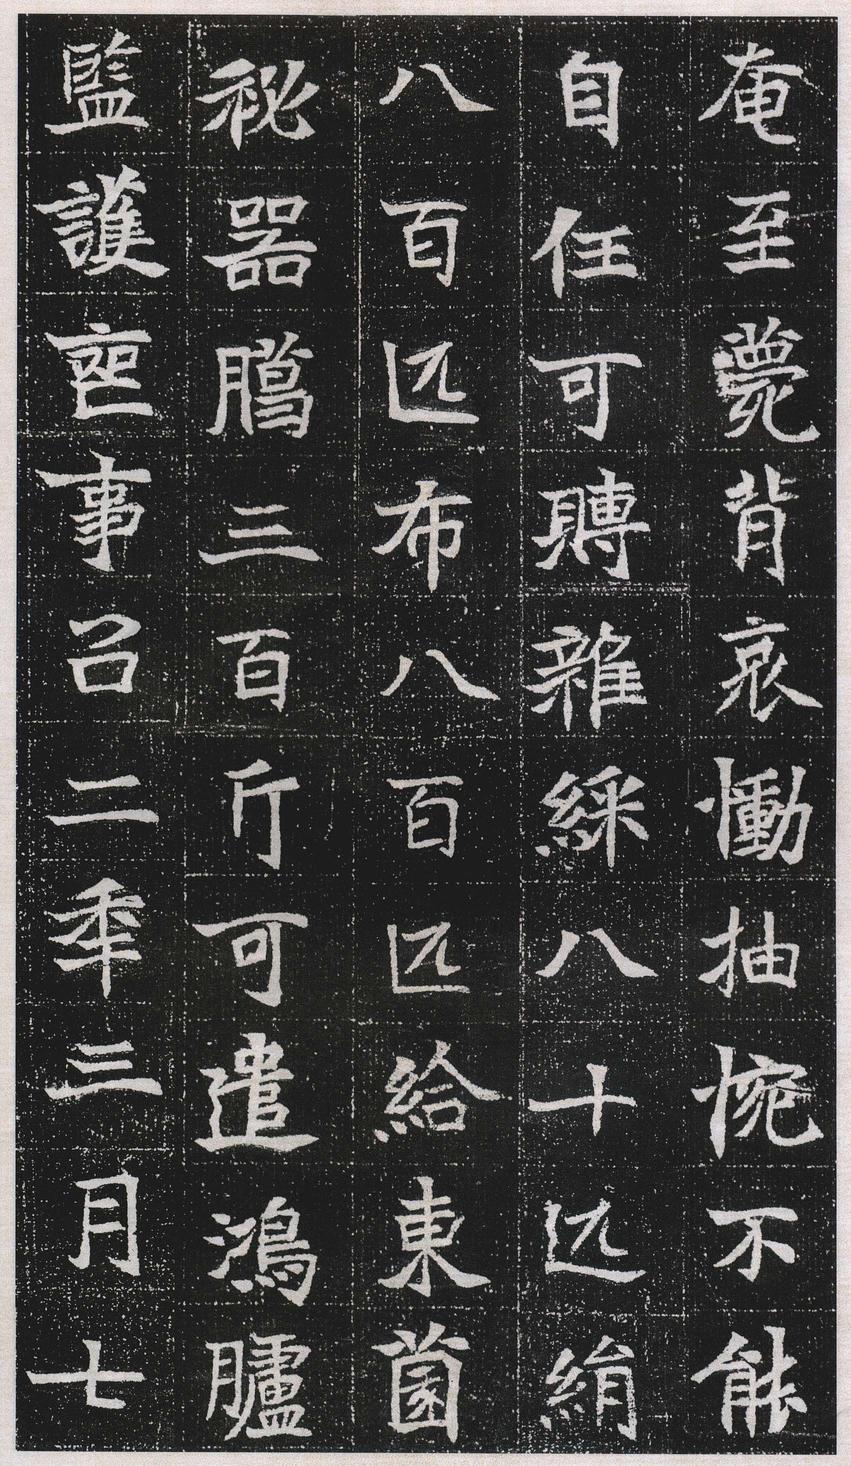 奄至薨背哀慟抽惋不能
自任可賻雜綵八十匹絹
八百匹布八百匹給東薗
祕器臈三百斤可遣鴻臚
監護喪事以二年三月七